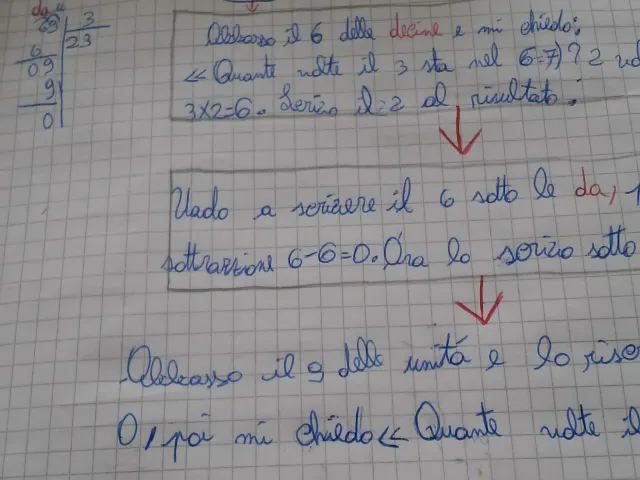 da u
69 3
6 23
09
9
0
Abbasso il 6 delle decine e mi chiedo:
« Quante volte il 3 sta nel 6=?)? 2
3x2=6. Scrivo il 2 al risultato.
Vado a scrivere il 6 sotto le da,
sottrazione 6-6=0. Ora lo scrivo sotto
Abbasso il 9 delle unitá e lo
0, poi mi chiedo « Quante volte il